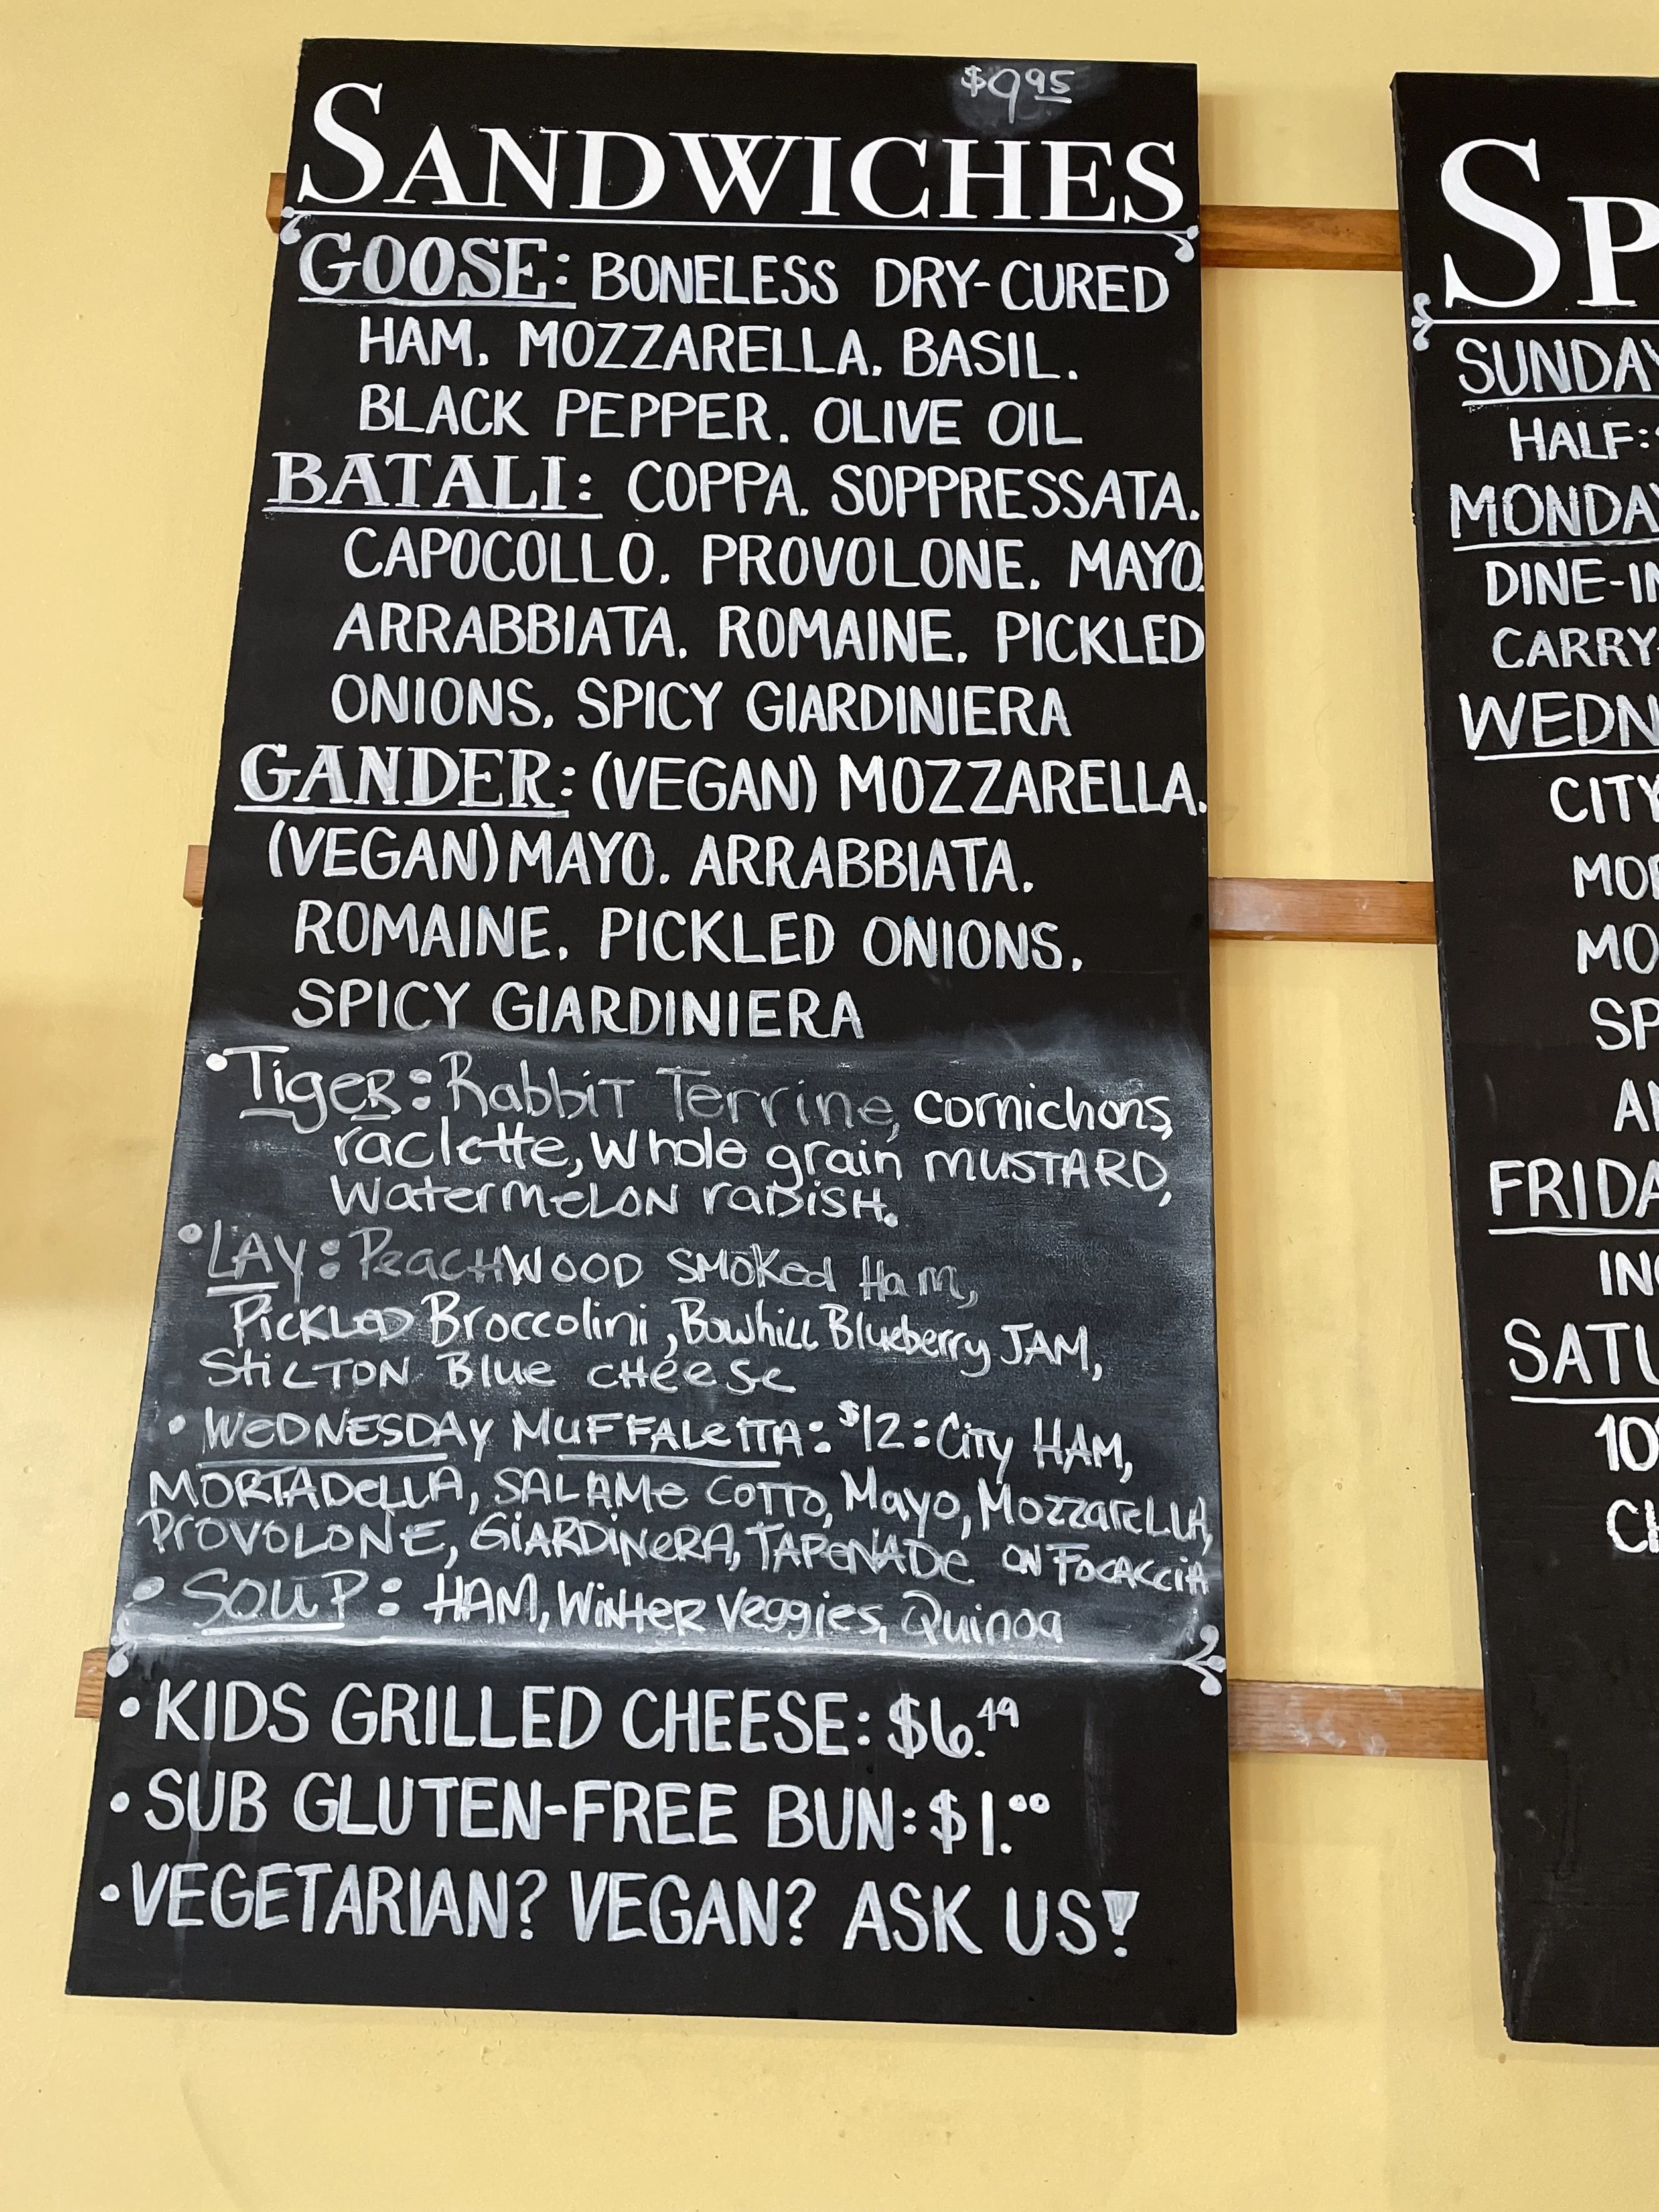 $9.95
SANDWICHES
GOOSE: BONELESS DRY-CURED
HAM. MOZZARELLA. BASIL.
BLACK PEPPER. OLIVE OIL
BATALI: COPPA. SOPPRESSATA.
CAPOCOLLO. PROVOLONE. MAYO.
ARRABBIATA. ROMAINE. PICKLED
ONIONS. SPICY GIARDINIERA
GANDER: (VEGAN) MOZZARELLA.
(VEGAN) MAYO. ARRABBIATA.
ROMAINE. PICKLED ONIONS.
SPICY GIARDINIERA
•TigeR: Rabbit Terrine, cornichons,
raclette, Whole grain MUSTARD,
WatermeLON raDish.
•LAY: PeacHWOOD SMOKed Ham,
PiCKLeD Broccolini, Bowhill Blueberry JAM,
StiLTON Blue cHeese
• WeDNESDAY MUFFALeTTA: $12: City HAM,
MORTADeLLA, SALAMe COTTO, Mayo, MozzareLLA,
PROVOLONE, GiARDiNeRA, TAPeNADe ON FOCACCiA
• SOUP: HAM, WiNteR Veggies, Quinoa
• KIDS GRILLED CHEESE: $6.49
• SUB GLUTEN-FREE BUN: $1.00
• VEGETARIAN? VEGAN? ASK US!
SP
SUNDAY
HALF:
MONDAY
DINE-IN
CARRY-
WEDN
CITY
MOR
MO
SP
AN
FRIDA
IN
SATU
10
CH